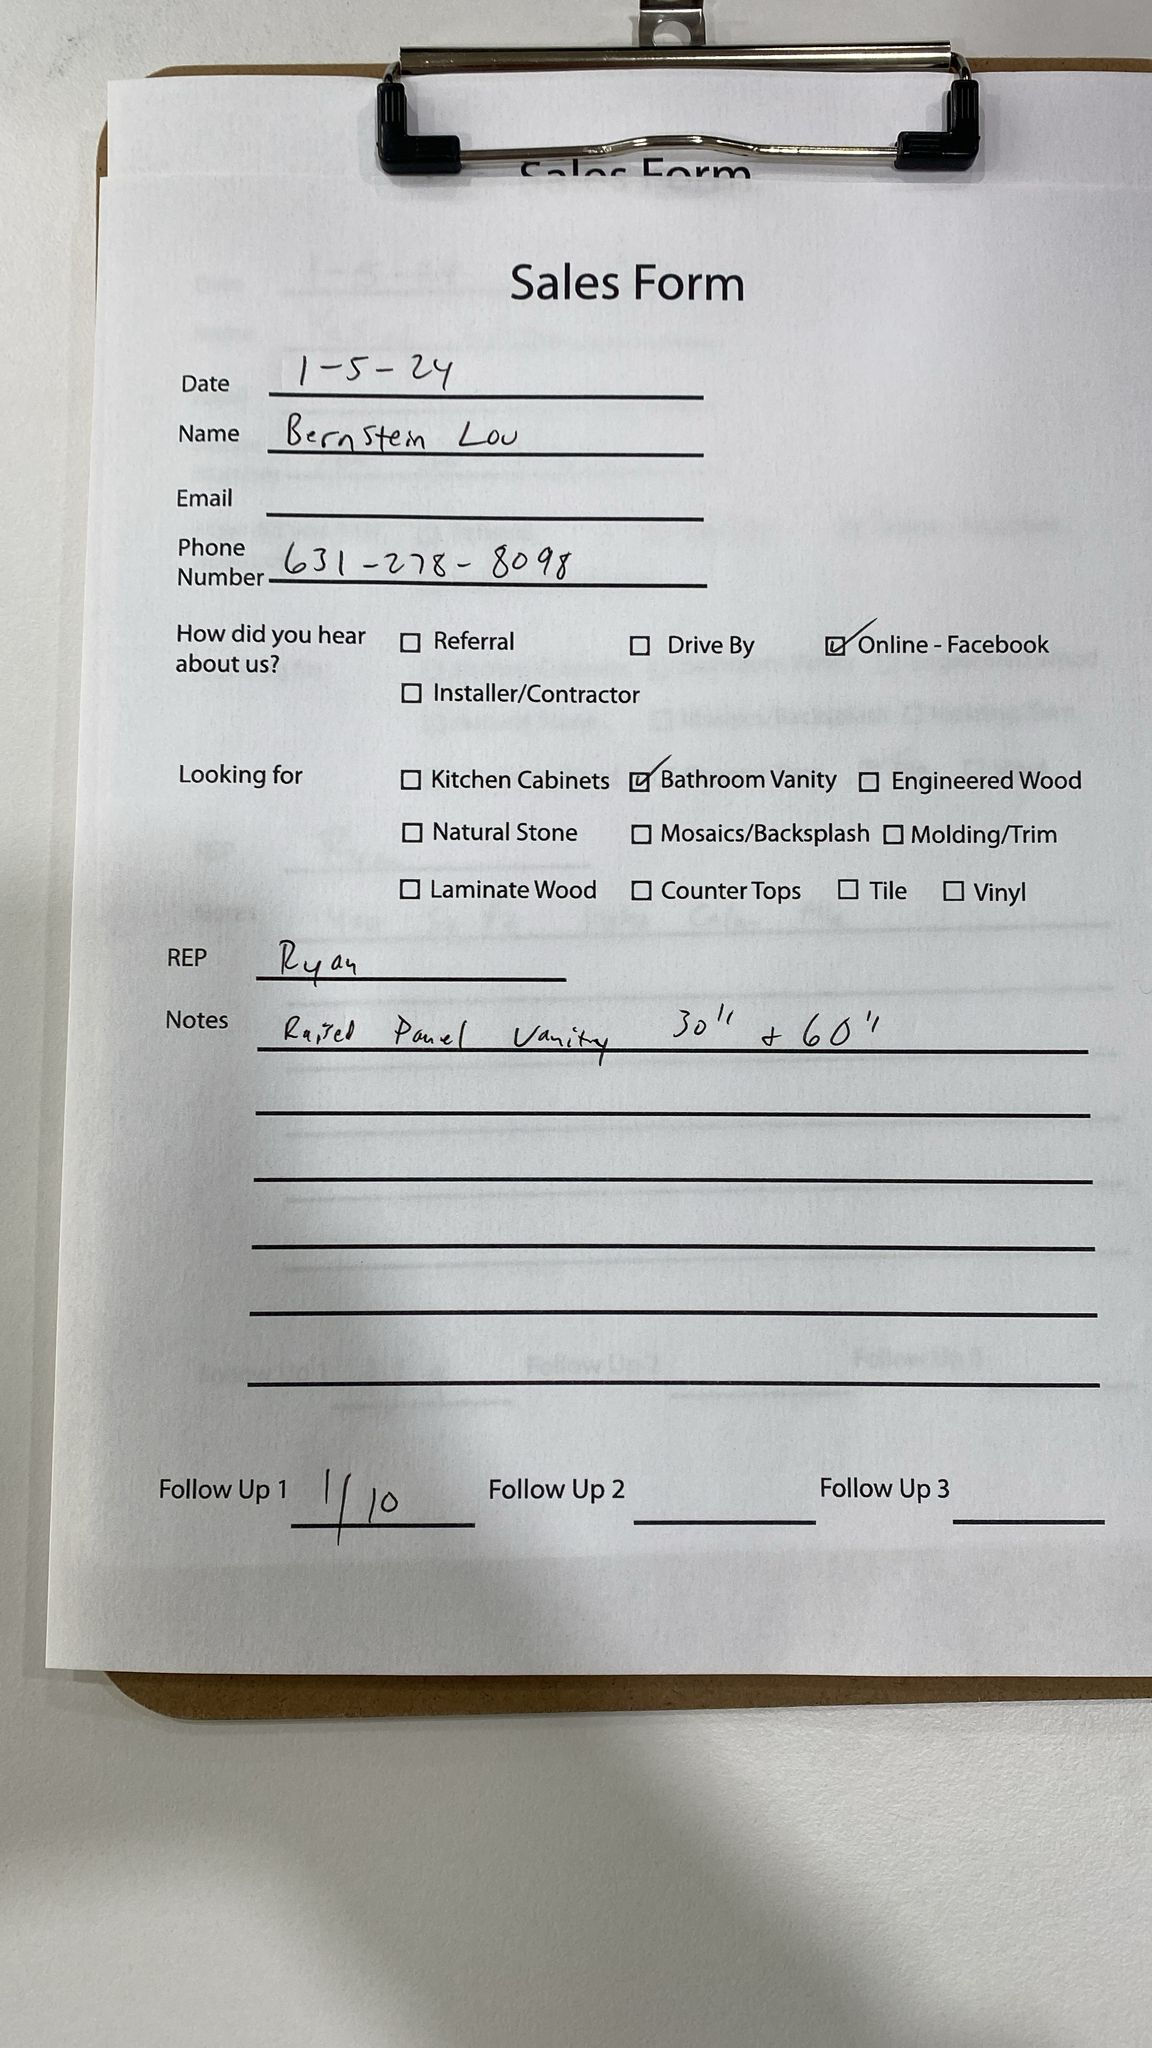 Sales Form
Sales Form
Date 1-5-24
Name Bernstein Lou
Email
Phone
Number 631-278-8098
How did you hear
about us?
☐ Referral ☐ Drive By ☑ Online - Facebook
☐ Installer/Contractor
Looking for ☐ Kitchen Cabinets ☑ Bathroom Vanity ☐ Engineered Wood
☐ Natural Stone ☐ Mosaics/Backsplash ☐ Molding/Trim
☐ Laminate Wood ☐ Counter Tops ☐ Tile ☐ Vinyl
REP Ryan
Notes Raised Panel Vanity 30" + 60"
Follow Up 1 1/10 Follow Up 2 Follow Up 3